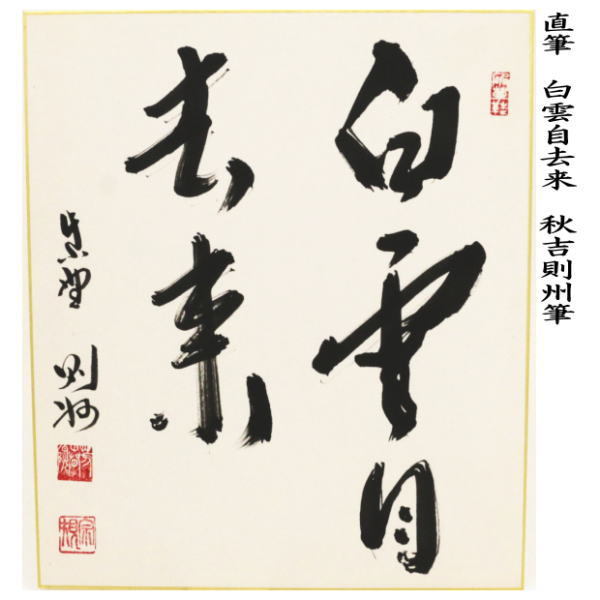 直筆 白雲自去来 秋吉則州筆
白雲自
去来
紫野 則州